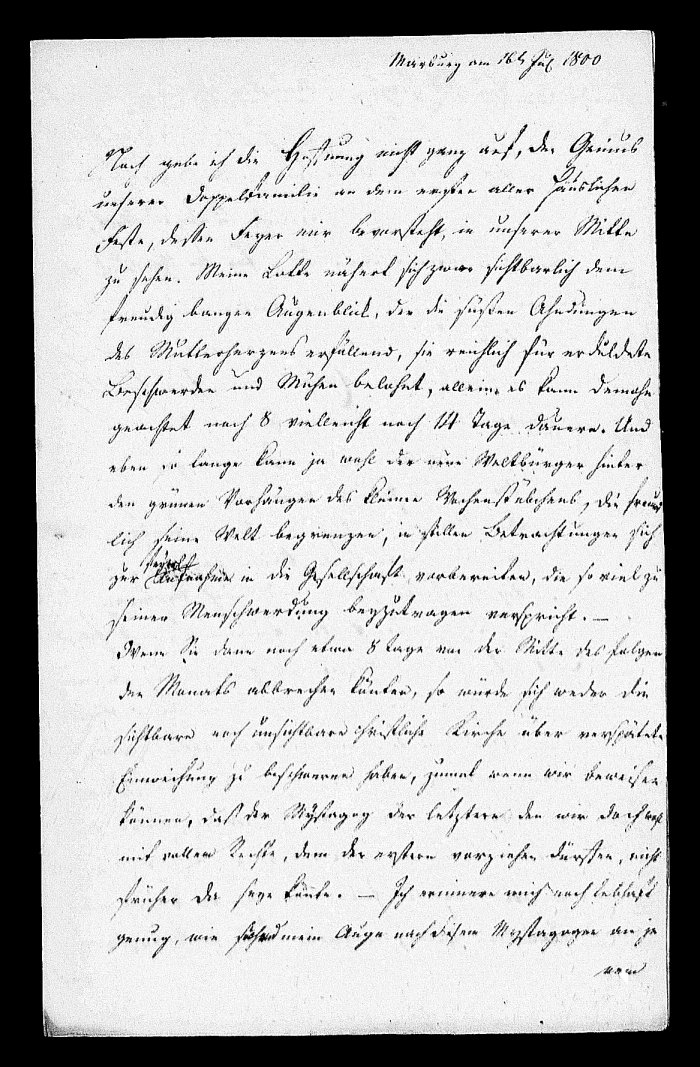 Marburg am 16t Jul 1800
Noch gebe ich die Hoffnung nicht ganz auf, den Genius
unserer Doppelfamilie an dem ersten aller häuslichen
Feste, dessen Feyer mir bevorsteht, in unserer Mitte
zu sehen. Meine Lotte nähert sich zwar sichtbarlich dem
freudig bangen Augenblick, der die süßen Ahndungen
des Mutterherzens erfüllend, sie reichlich für erduldete
Beschwerden und Mühen belohnt, allein es kann demohn
geachtet noch 8 vielleicht noch 14 Tage dauern. Und
eben so lange kann ja wohl der neue Weltbürger hinter
den grünen Vorhängen des kleinen Wochenstübchens, die freund
lich seine Welt begrenzen, in stillen Betrachtungen sich
zur Aufnahme in die Gesellschaft vorbereiten, die so viel zu
seiner Menschwerdung beyzutragen verspricht. —
Wenn Sie dann noch etwa 8 Tage von der Mitte des folgen
den Monats abbrechen könten, so würde sich weder die
sichtbare noch unsichtbare christliche Kirche über verspätete
Einweihung zu beschweren haben, zumal wenn wir beweisen
können, daß der Mystagog der letztern den wir doch wohl
mit vollem Rechte, dem der erstern vorziehen dürften, nicht
früher da seyn konte. — Ich erinnere mich noch lebhaft
genug, wie mein Auge nach diesem Mystagogen an je
nem